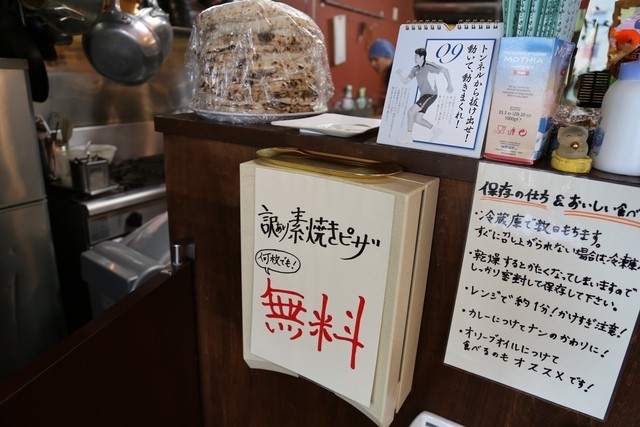 09
トンネルから抜け出せ!
動いて、動きまくれ!
MOTHIA
訳あり素焼きピザ
何枚でも!
無料
保存の仕方&おいしい食べ
・冷蔵庫で数日もちます。
すぐに召し上がられない場合は冷凍
・乾燥するとかたくなってしまいますので
しっかり密封して保存して下さい。
・レンジで約1分!かけすぎ注意!
・カレーにつけてナンのかわりに!
・オリーブオイルにつけて
食べるのもオススメです!